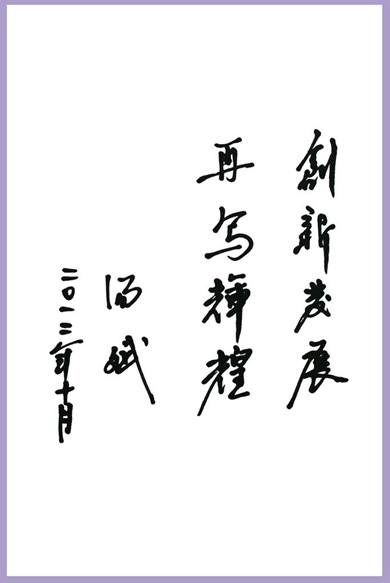 創新发展
再写輝煌
汤斌
二〇一二年十月